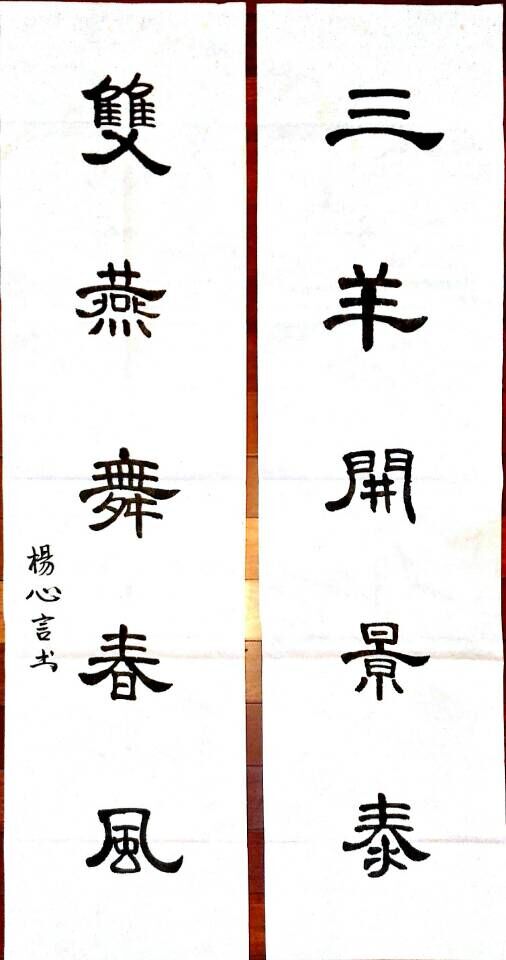 三羊開景泰
雙燕舞春風
楊心言书